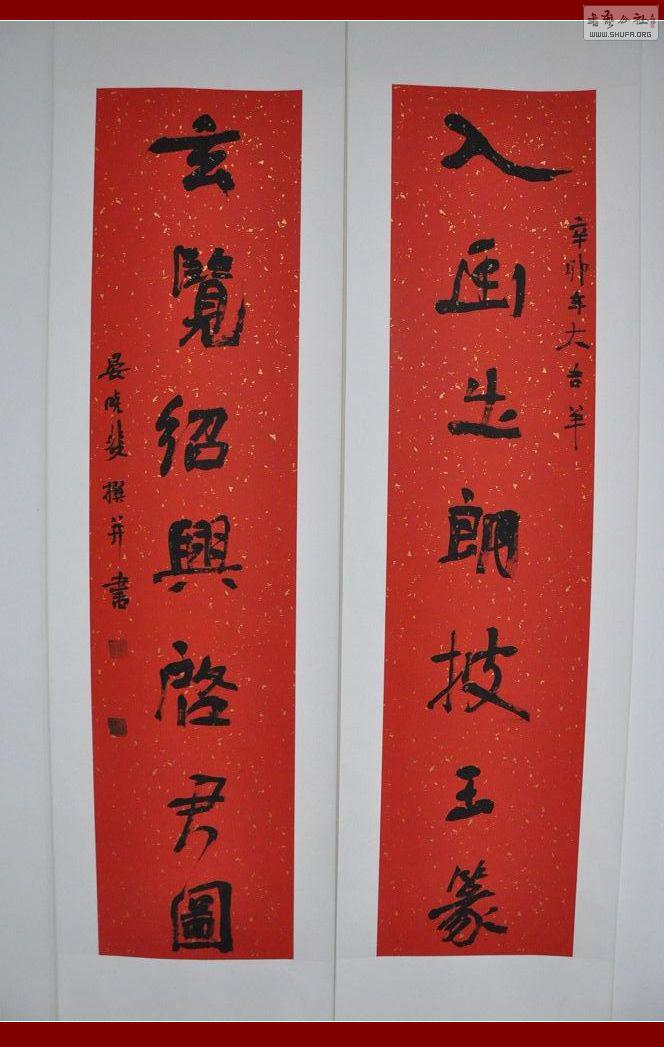 書藝公社
WWW.SHUFA.ORG
入画朗披王篆
辛卯年大吉羊
玄覽紹興啓尹圖
晏晓斐撰并書